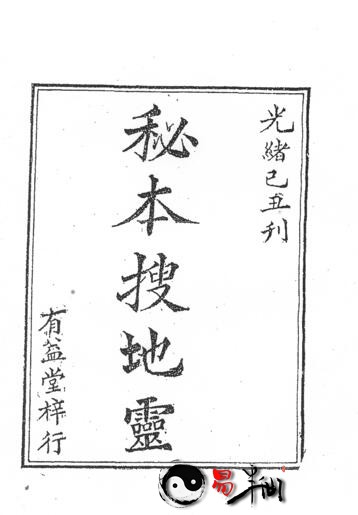 光緒己丑刊
秘本搜地靈
有益堂梓行
易